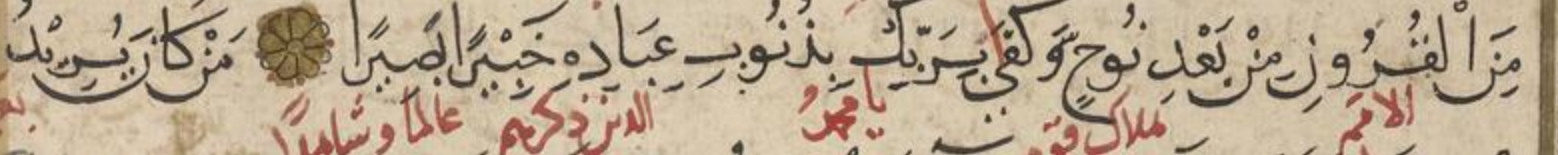 مِنَ الْقُرُونِ مِنْ بَعْدِ نُوحٍ وَّكَفَى بِرَبِّكَ بِذُنُوبِ عِبَادِهِ خَبِيْرًا بَصِيرًا مَنْ كَانَ يُرِيْدُ
الامم هلاك قوم يا محمد الذين ذكرهم عالما وشاهدا